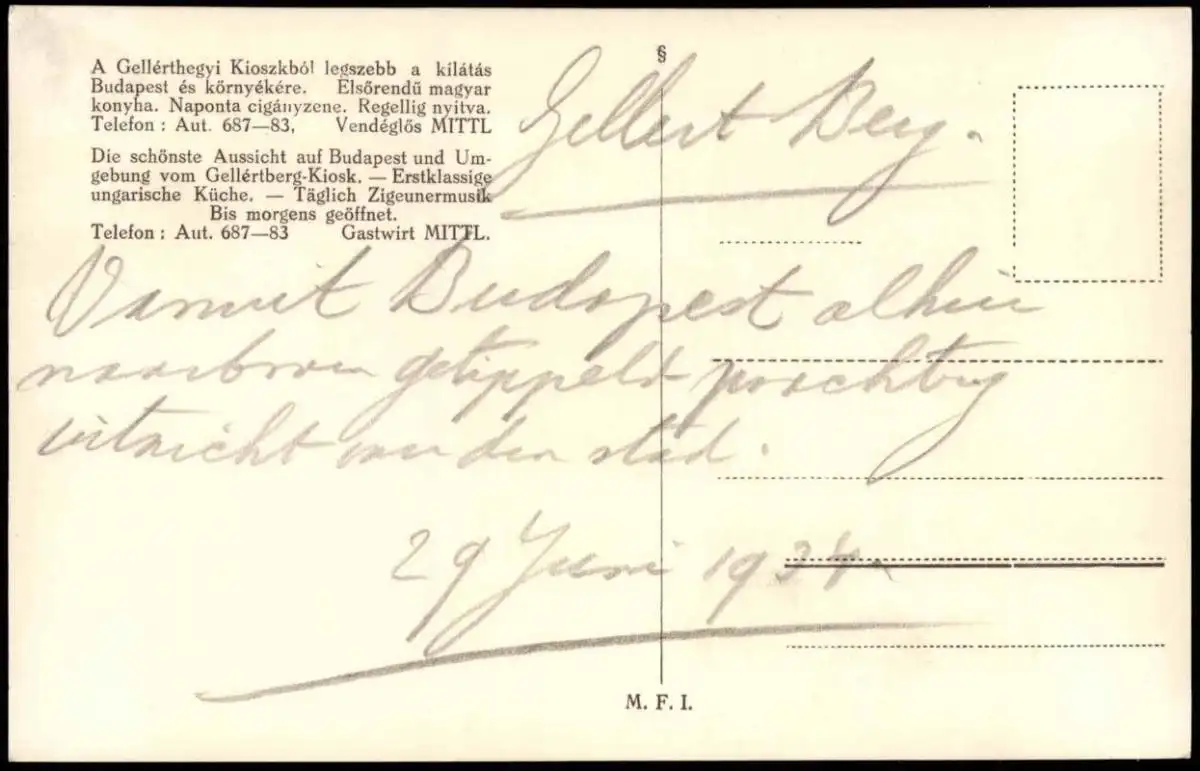 A Gellérthegyi Kioszkból legszebb a kilátás
Budapest és környékére. Elsőrendű magyar
konyha. Naponta cigányzene. Regellig nyitva.
Telefon : Aut. 687—83, Vendéglős MITTL
Die schönste Aussicht auf Budapest und Um-
gebung vom Gellértberg-Kiosk. — Erstklassige
ungarische Küche. — Täglich Zigeunermusik
Bis morgens geöffnet.
Telefon : Aut. 687—83 Gastwirt MITTL.
§
Gellert Berg.
Vanuit Budapest alhier
naarboven getippeld prachtig
uitzicht over den stad.
29 Juni 1934
M. F. I.